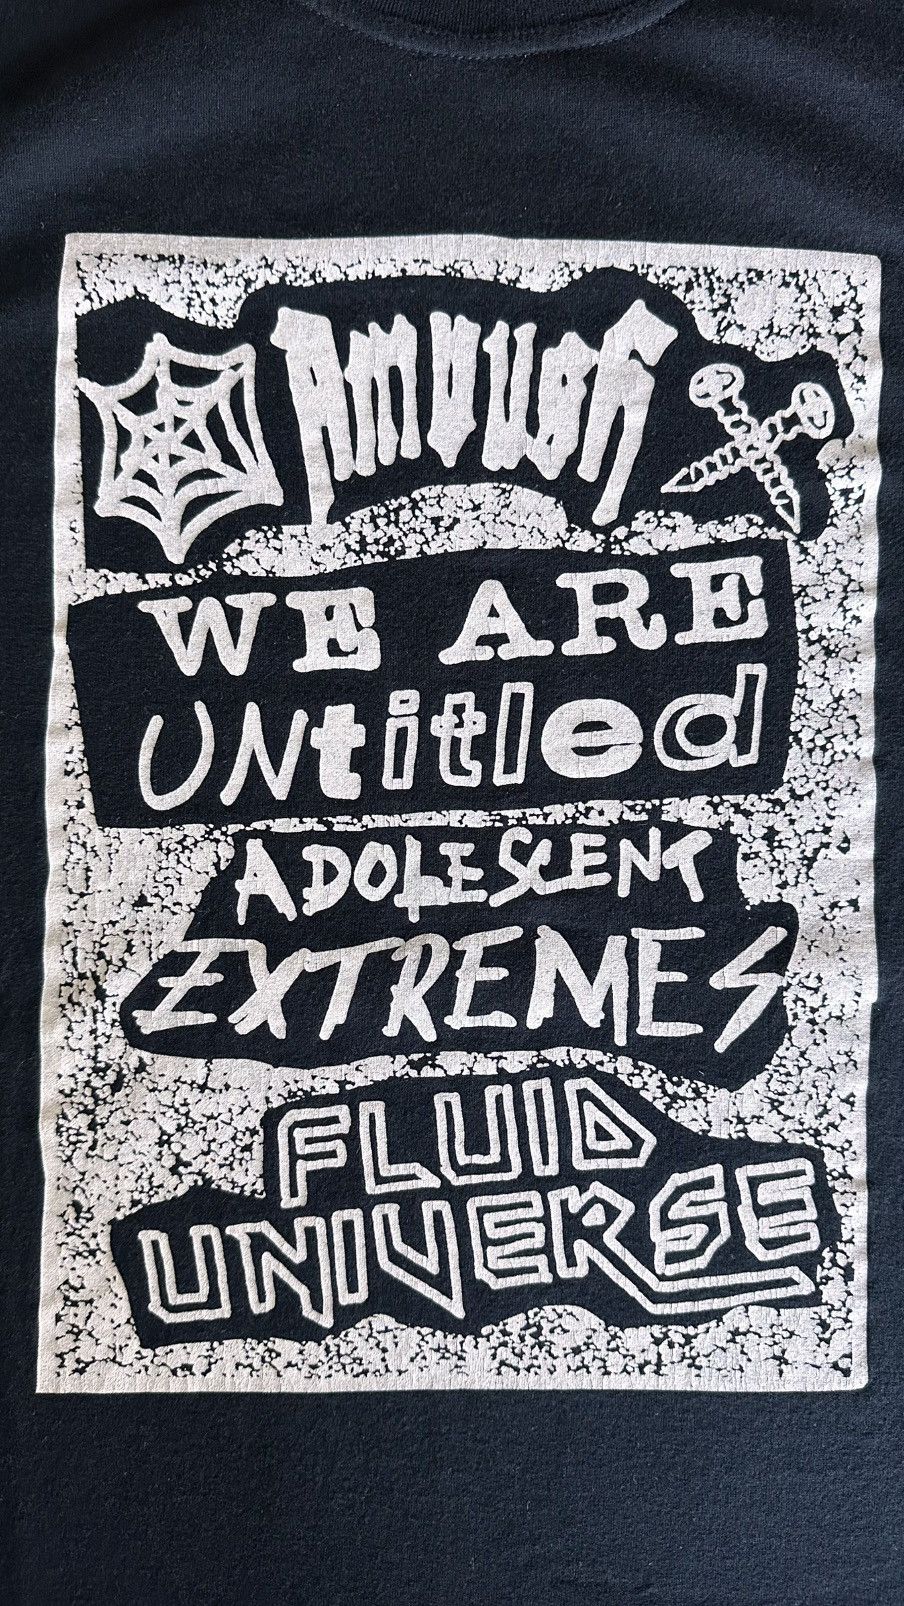 Amoush
WE ARE
UNtitled
ADOLESCENT
EXTREMES
FLUID
UNIVERSE